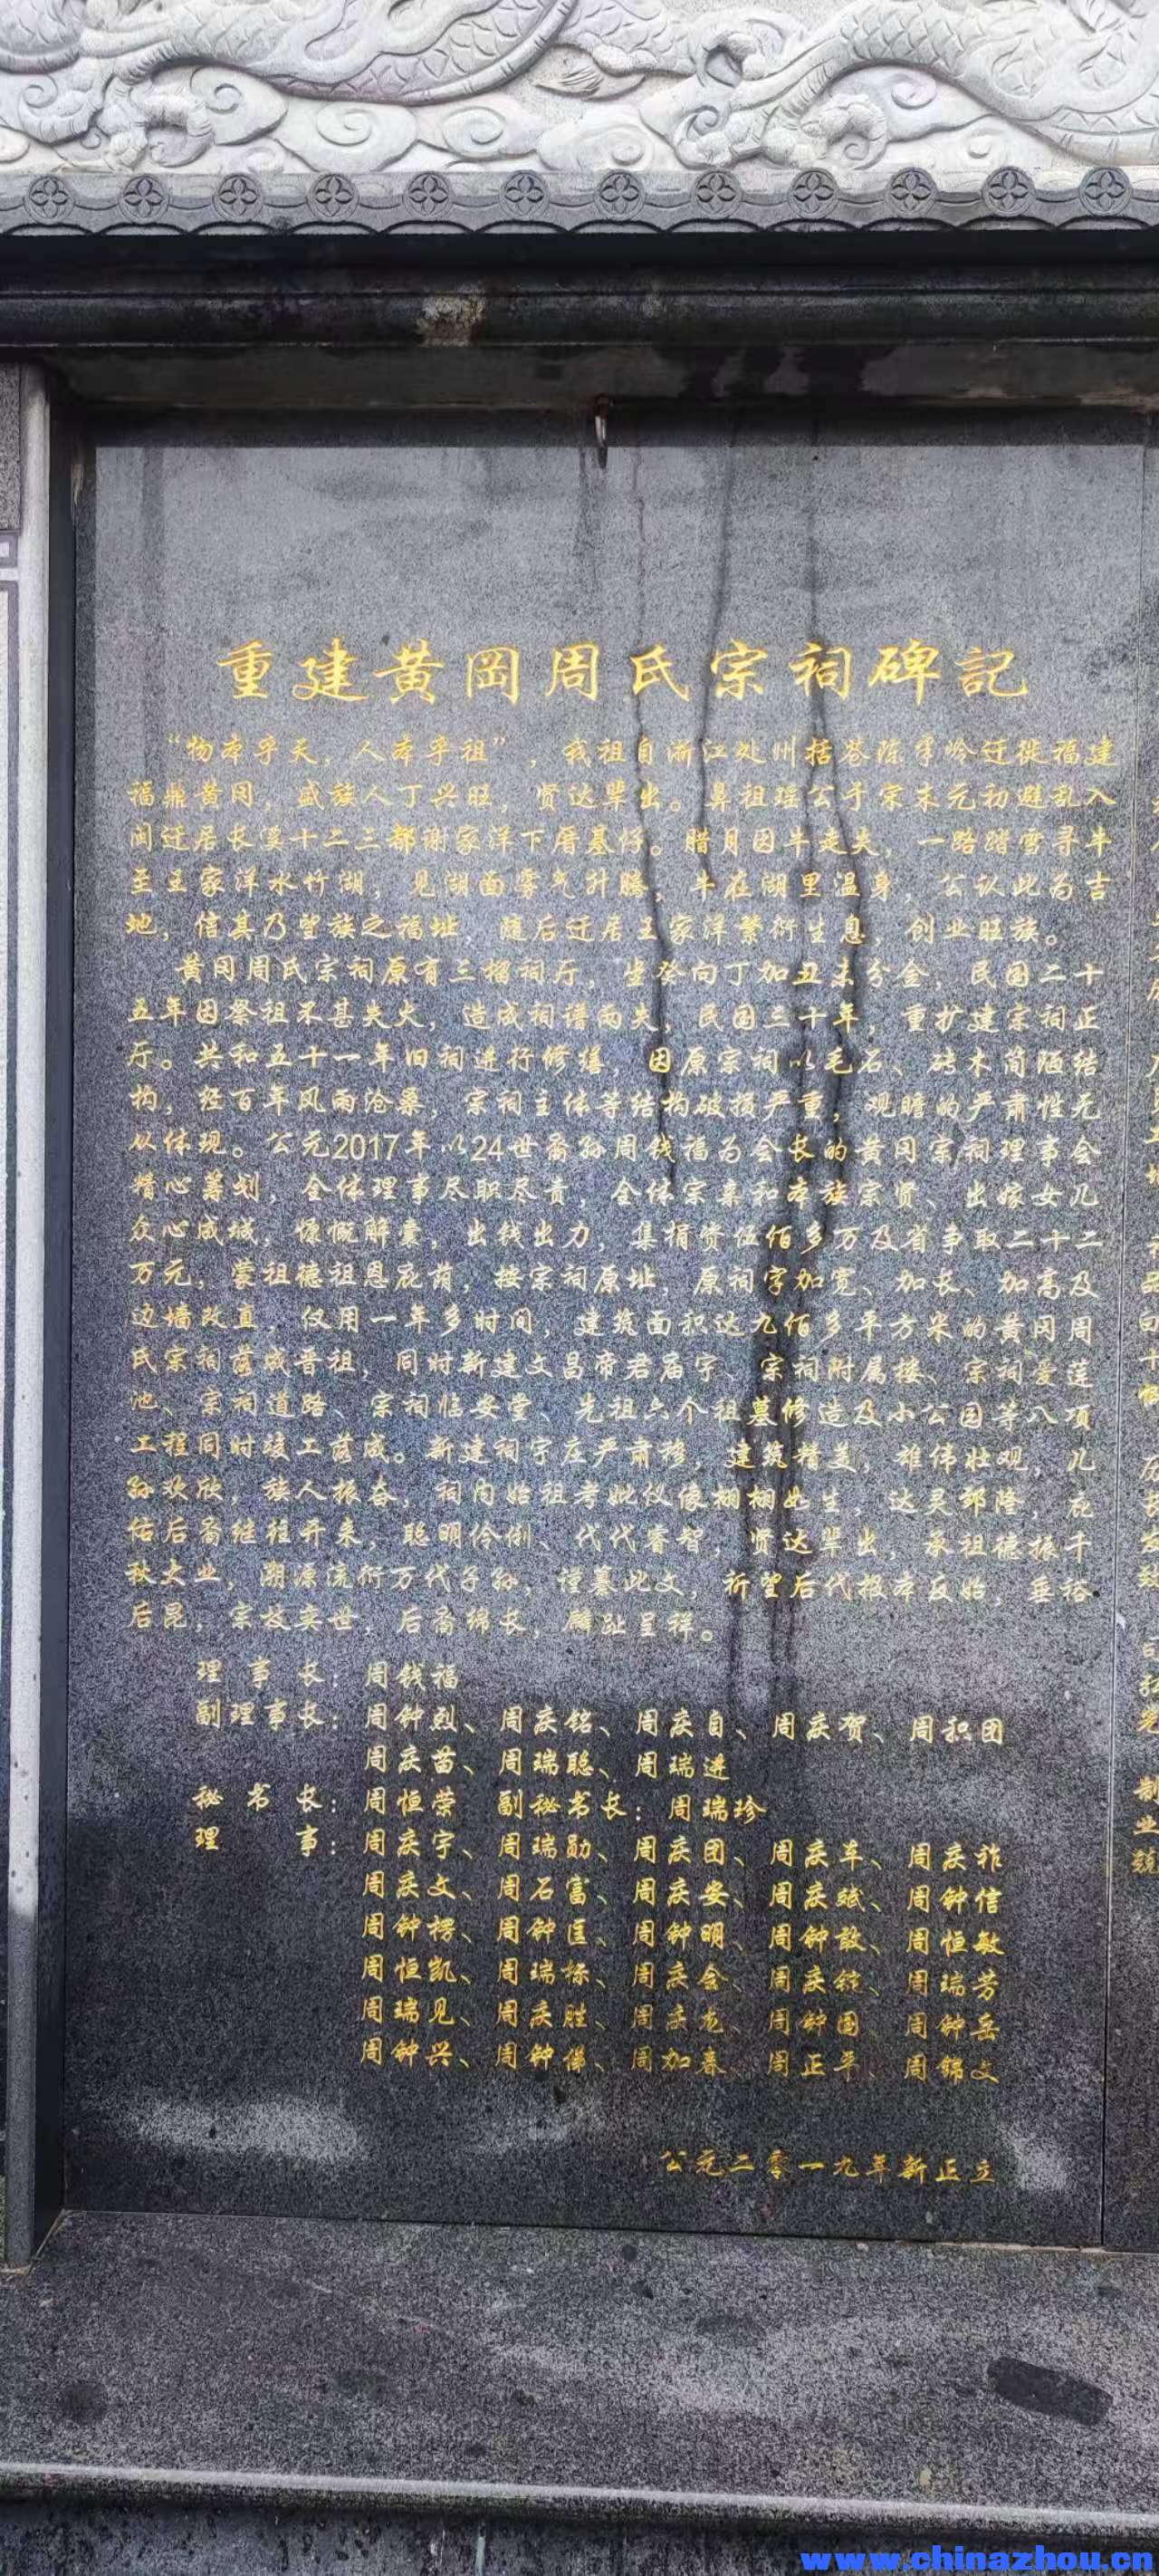 重建黄冈周氏宗祠碑記
“物本乎天，人本乎祖”，我祖自浙江处州括苍陈家岭迁徙福建
福鼎黄冈，盛族人丁兴旺，贤达辈出。鼻祖瑶公于宋末元初避乱入
闽迁居长溪十二三都谢家洋下厝基仔。腊月因牛走失，一路踏雪寻牛
至王家洋水竹湖，见湖面雾气升腾，牛在湖里温身，公认此为吉
地，信其乃望族之福址，随后迁居王家洋繁衍生息，创业旺族。
黄冈周氏宗祠原有三榴祠厅，坐癸向丁加丑未分金，民国二十
五年因祭祖不甚失火，造成祠谱两失，民国三十年，重扩建宗祠正
厅。共和五十一年旧祠进行修缮，因原宗祠以毛石、砖木简陋结
构，经百年风雨沧桑，宗祠主体等结构破损严重，观瞻的严肃性无
从体现。公元2017年以24世裔孙周钱福为会长的黄冈宗祠理事会
精心筹划，全体理事尽职尽责，全体宗亲和本族宗贤、出嫁女儿
众心成城，慷慨解囊，出钱出力，集捐资伍佰多万及省争取二十二
万元，蒙祖德祖恩庇荫，按宗祠原址，原祠字加宽、加长、加高及
边墙改直，仅用一年多时间，建筑面积达九佰多平方米的黄冈周
氏宗祠落成晋祖，同时新建文昌帝君庙宇、宗祠附属楼、宗祠爱莲
池、宗祠道路、宗祠临安堂、先祖六个祖墓修造及小公园等八项
工程同时竣工落成。新建祠宇庄严肃穆，建筑精美，雄伟壮观，儿
孙欢欣，族人振奋，祠内始祖考妣仪像栩栩如生，达灵郅隆，庇
佑后裔继往开来，聪明伶俐、代代睿智，贤达辈出，承祖德振千
秋大业，溯源流衍万代子孙，谨墓此文，祈望后代报本反始，垂裕
后昆，宗枝奕世，后裔绵长，麟趾呈祥。
理事长：周钱福
副理事长：周钟烈、周庆铭、周庆自、周庆贺、周积团
周庆苗、周瑞聪、周瑞进
秘书长：周恒荣 副秘书长：周瑞珍
理事：周庆宇、周瑞勋、周庆团、周庆车、周庆祚
周庆文、周石富、周庆安、周庆斌、周钟信
周钟楞、周钟匡、周钟明、周钟敢、周恒敏
周恒凯、周瑞标、周庆会、周庆锭、周瑞芳
周瑞见、周庆胜、周庆龙、周钟国、周钟岳
周钟兴、周钟俤、周加春、周正平、周锦文
公元二零一九年新正立
www.chinazhou.cn